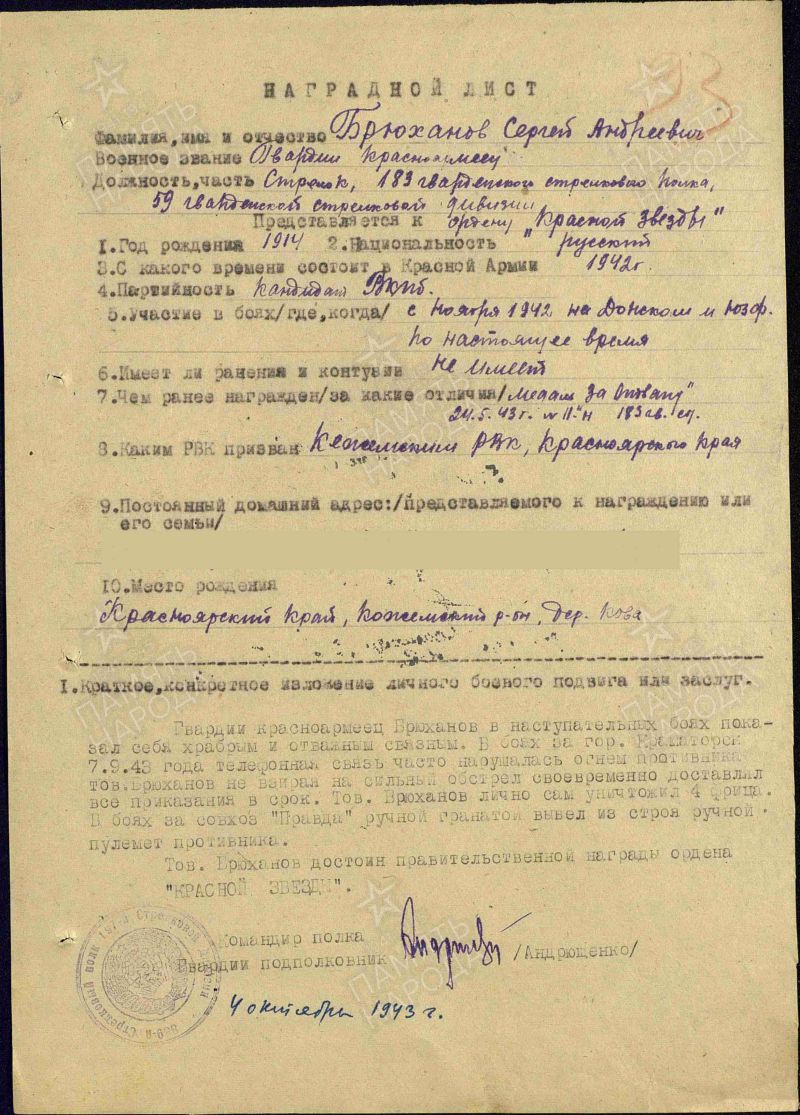 93
НАГРАДНОЙ ЛИСТ
Фамилия,имя и отчество Брюханов Сергей Андреевич
Военное звание Гвардии красноармеец
Должность,часть Стрелок, 183 гвардейского стрелкового полка,
59 гвардейской стрелковой дивизии
Представляется к ордену "Красной звезды"
1.Год рождения 1914 2.Национальность русский
3.С какого времени состоит в Красной Армии 1942г.
4.Партийность кандидат ВКПб.
5.Участие в боях/где,когда/ с ноября 1942 на Донском и Юзф.
по настоящее время
6.Имеет ли ранения и контузии не имеет
7.Чем ранее награжден/за какие отличия/ медаль За Отвагу"
24.5.43г. 183 гв. сп.
8.Каким РВК призван Кежемским РВК, Красноярского края
9.Постоянный домашний адрес:/представляемого к награждению или
его семьи/
10.Место рождения
Красноярский край, Кожемский р-он, дер. Кова
1.Краткое,конкретное изложение личного боевого подвига или заслуг.
Гвардии красноармеец Брюханов в наступательных боях пока-
зал себя храбрым и отважным связным. В боях за гор. Краматорск
7.9.43 года телефонная связь часто нарушалась огнем противника
тов.Брюханов не взирая на сильный обстрел своевременно доставлял
все приказания в срок. Тов. Брюханов лично сам уничтожил 4 фрица.
В боях за совхоз "Правда" ручной гранатой вывел из строя ручной
пулемет противника.
Тов. Брюханов достоин правительственной награды ордена
"КРАСНОЙ ЗВЕЗДЫ".
Командир полка
Гвардии подполковник /Андрющенко/
4 октября 1943 г.
ПАМЯТЬ НАРОДА